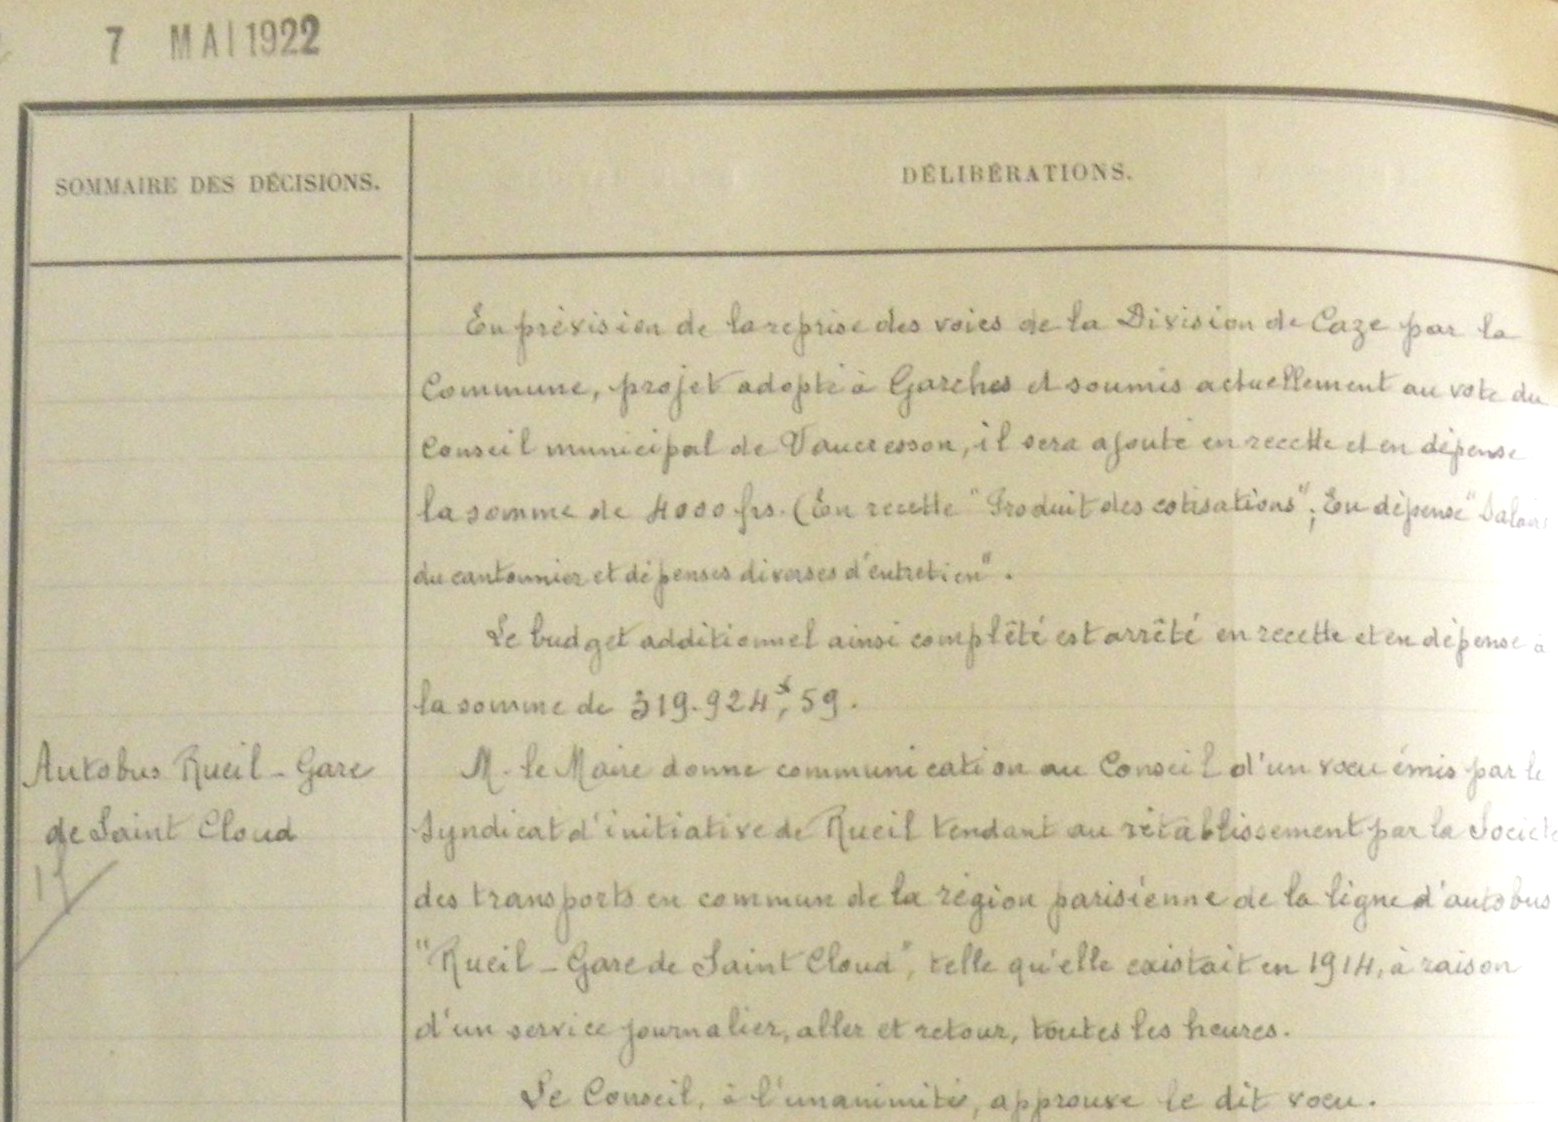 7 MAI 1922
SOMMAIRE DES DÉCISIONS.
DÉLIBÉRATIONS.
En prévision de la reprise des voies de la Division de Caze par la
Commune, projet adopté à Garches et soumis actuellement au vote du
Conseil municipal de Vaucresson, il sera ajouté en recette et en dépense
la somme de 4000 frs. (En recette "Produit des cotisations"; En dépense "Salaire
du cantonnier et dépenses diverses d'entretien".
Le budget additionnel ainsi complété est arrêté en recette et en dépense à
la somme de 319.924f,59.
Autobus Rueil - Gare
de Saint Cloud
M. le Maire donne communication au Conseil d'un vœu émis par le
Syndicat d'initiative de Rueil tendant au rétablissement par la Société
des transports en commun de la région parisienne de la ligne d'autobus
"Rueil - Gare de Saint Cloud", telle qu'elle existait en 1914, à raison
d'un service journalier, aller et retour, toutes les heures.
Le Conseil, à l'unanimité, approuve le dit vœu.